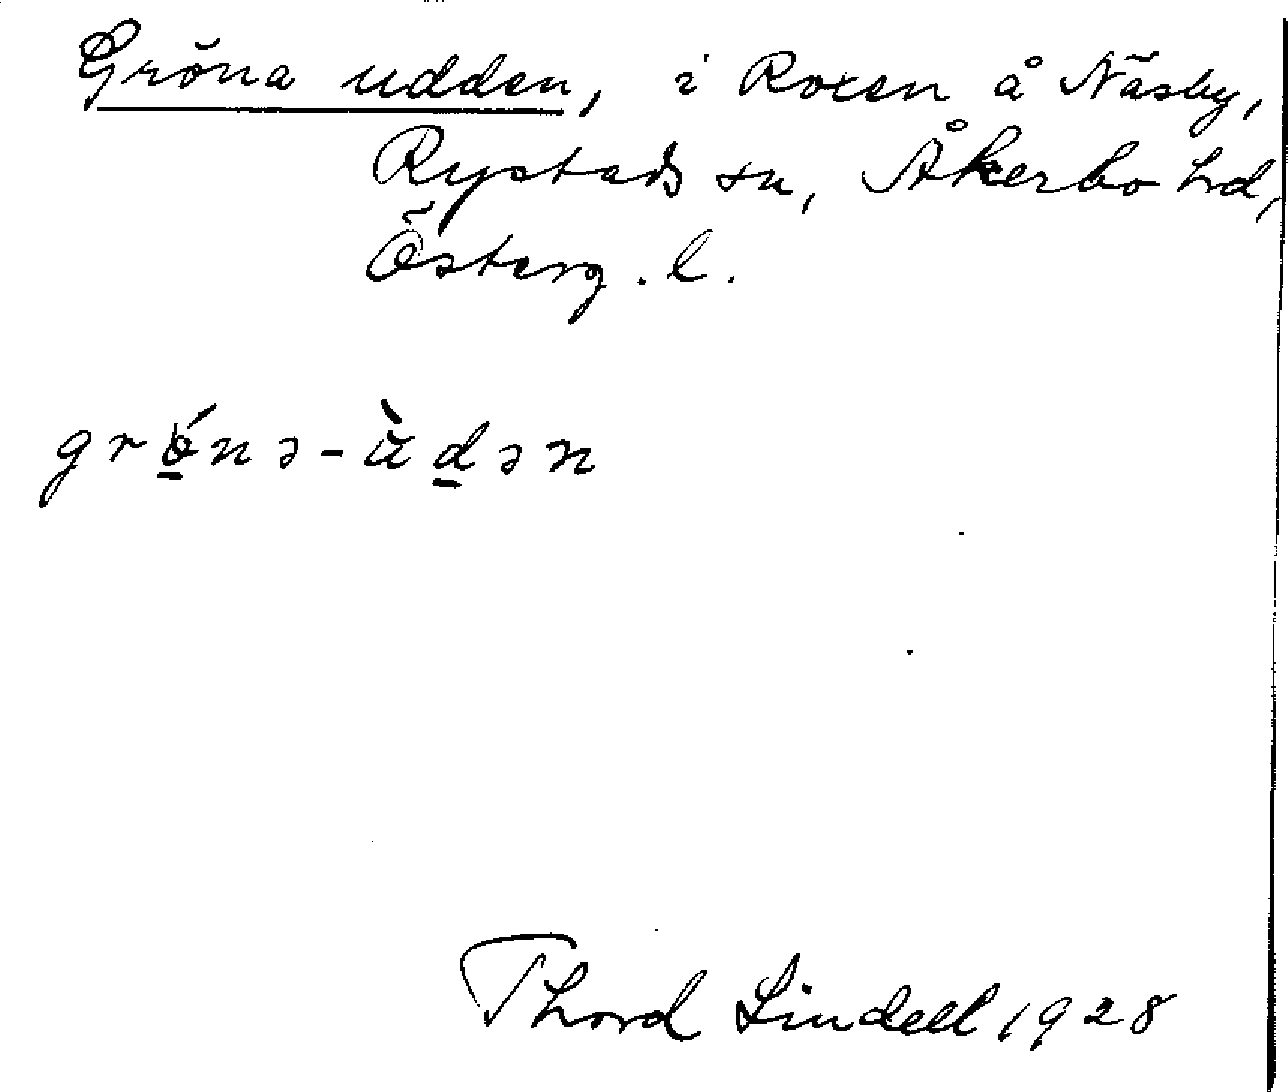 Gröna udden, i Roxen å Näsby,
Rystads sn, Åkerbo hd,
Österg. l.
grǿ̱nə-ùḏən
Thord Lindell 1928